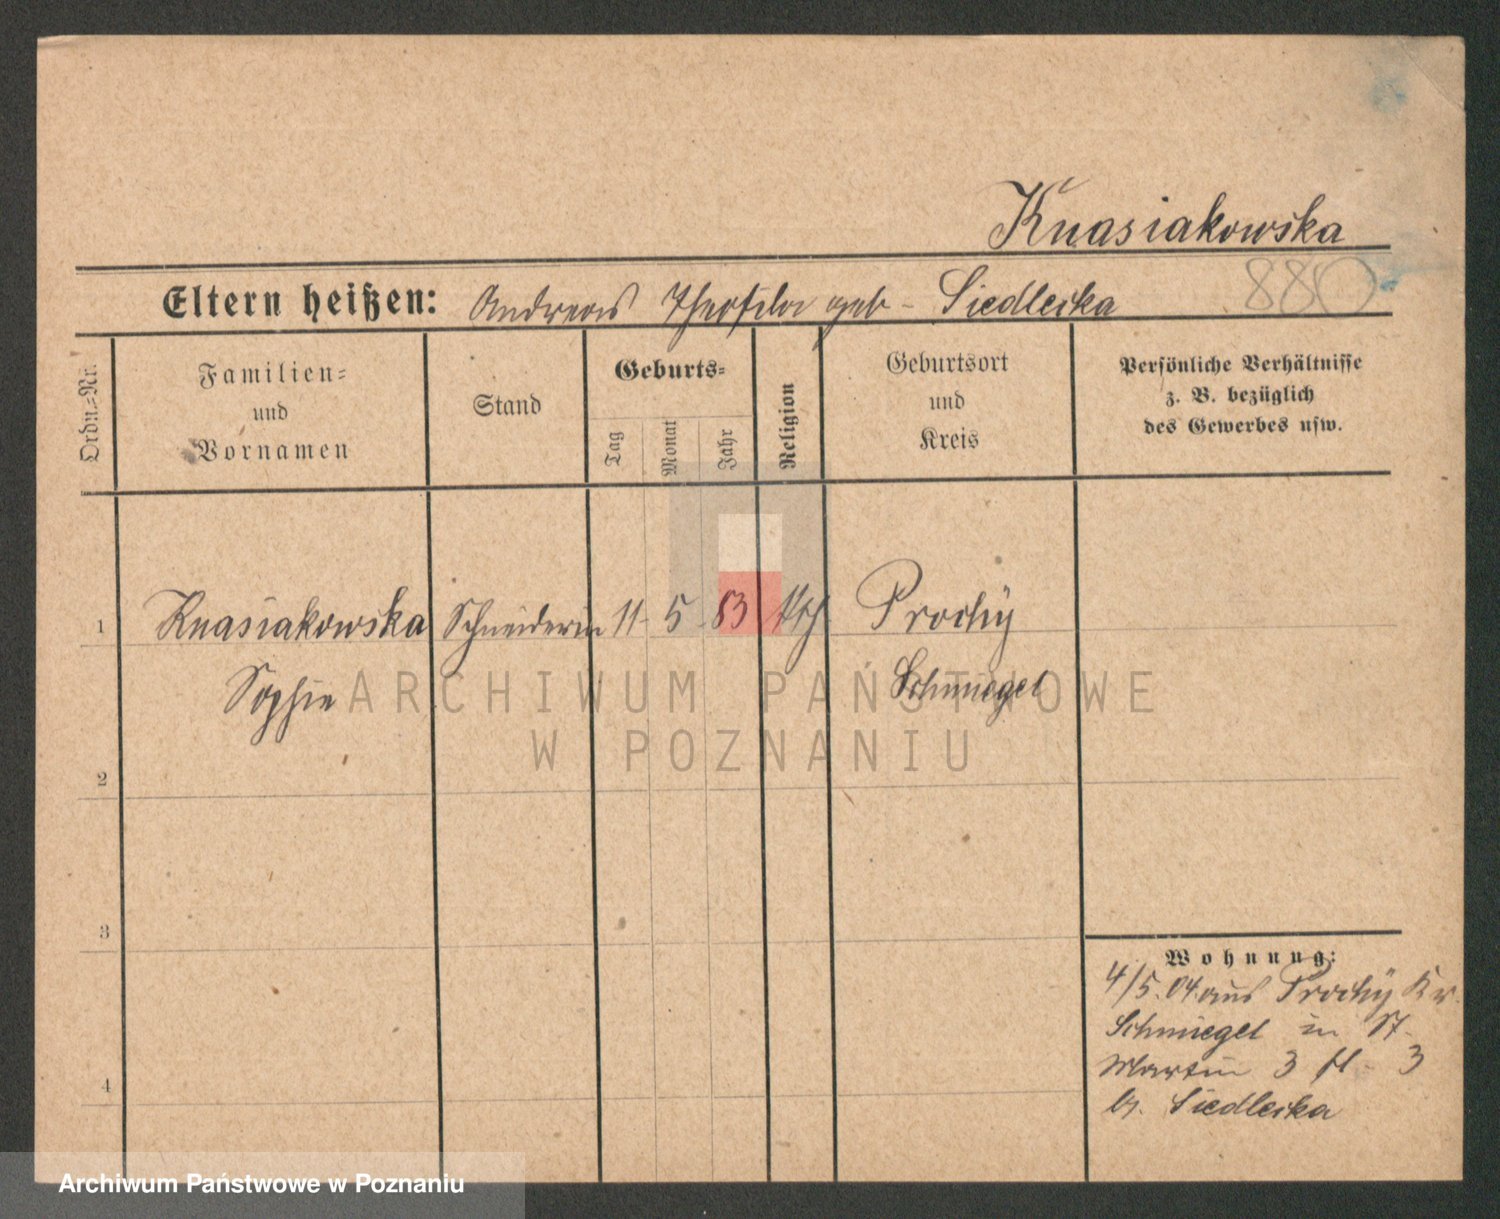 Knasiakowska
880
Eltern heißen: Andreas Theofila geb- Siedlecka
Ordn.=Nr.
Familien=
und
Vornamen
Stand
Geburts=
Tag
Monat
Jahr
Religion
Geburtsort
und
Kreis
Persönliche Verhältnisse
z. B. bezüglich
des Gewerbes usw.
1 Knasiakowska Schneiderin 11- 5- 83 kth Prochÿ
Sophie Schmiegel
ARCHIWUM PAŃSTWOWE
W POZNANIU
2
3
4
Wohnung:
4/5.04. aus Prochÿ Kr.
Schmiegel in St.
Martin 3 3
b. Siedlecka
Archiwum Państwowe w Poznaniu